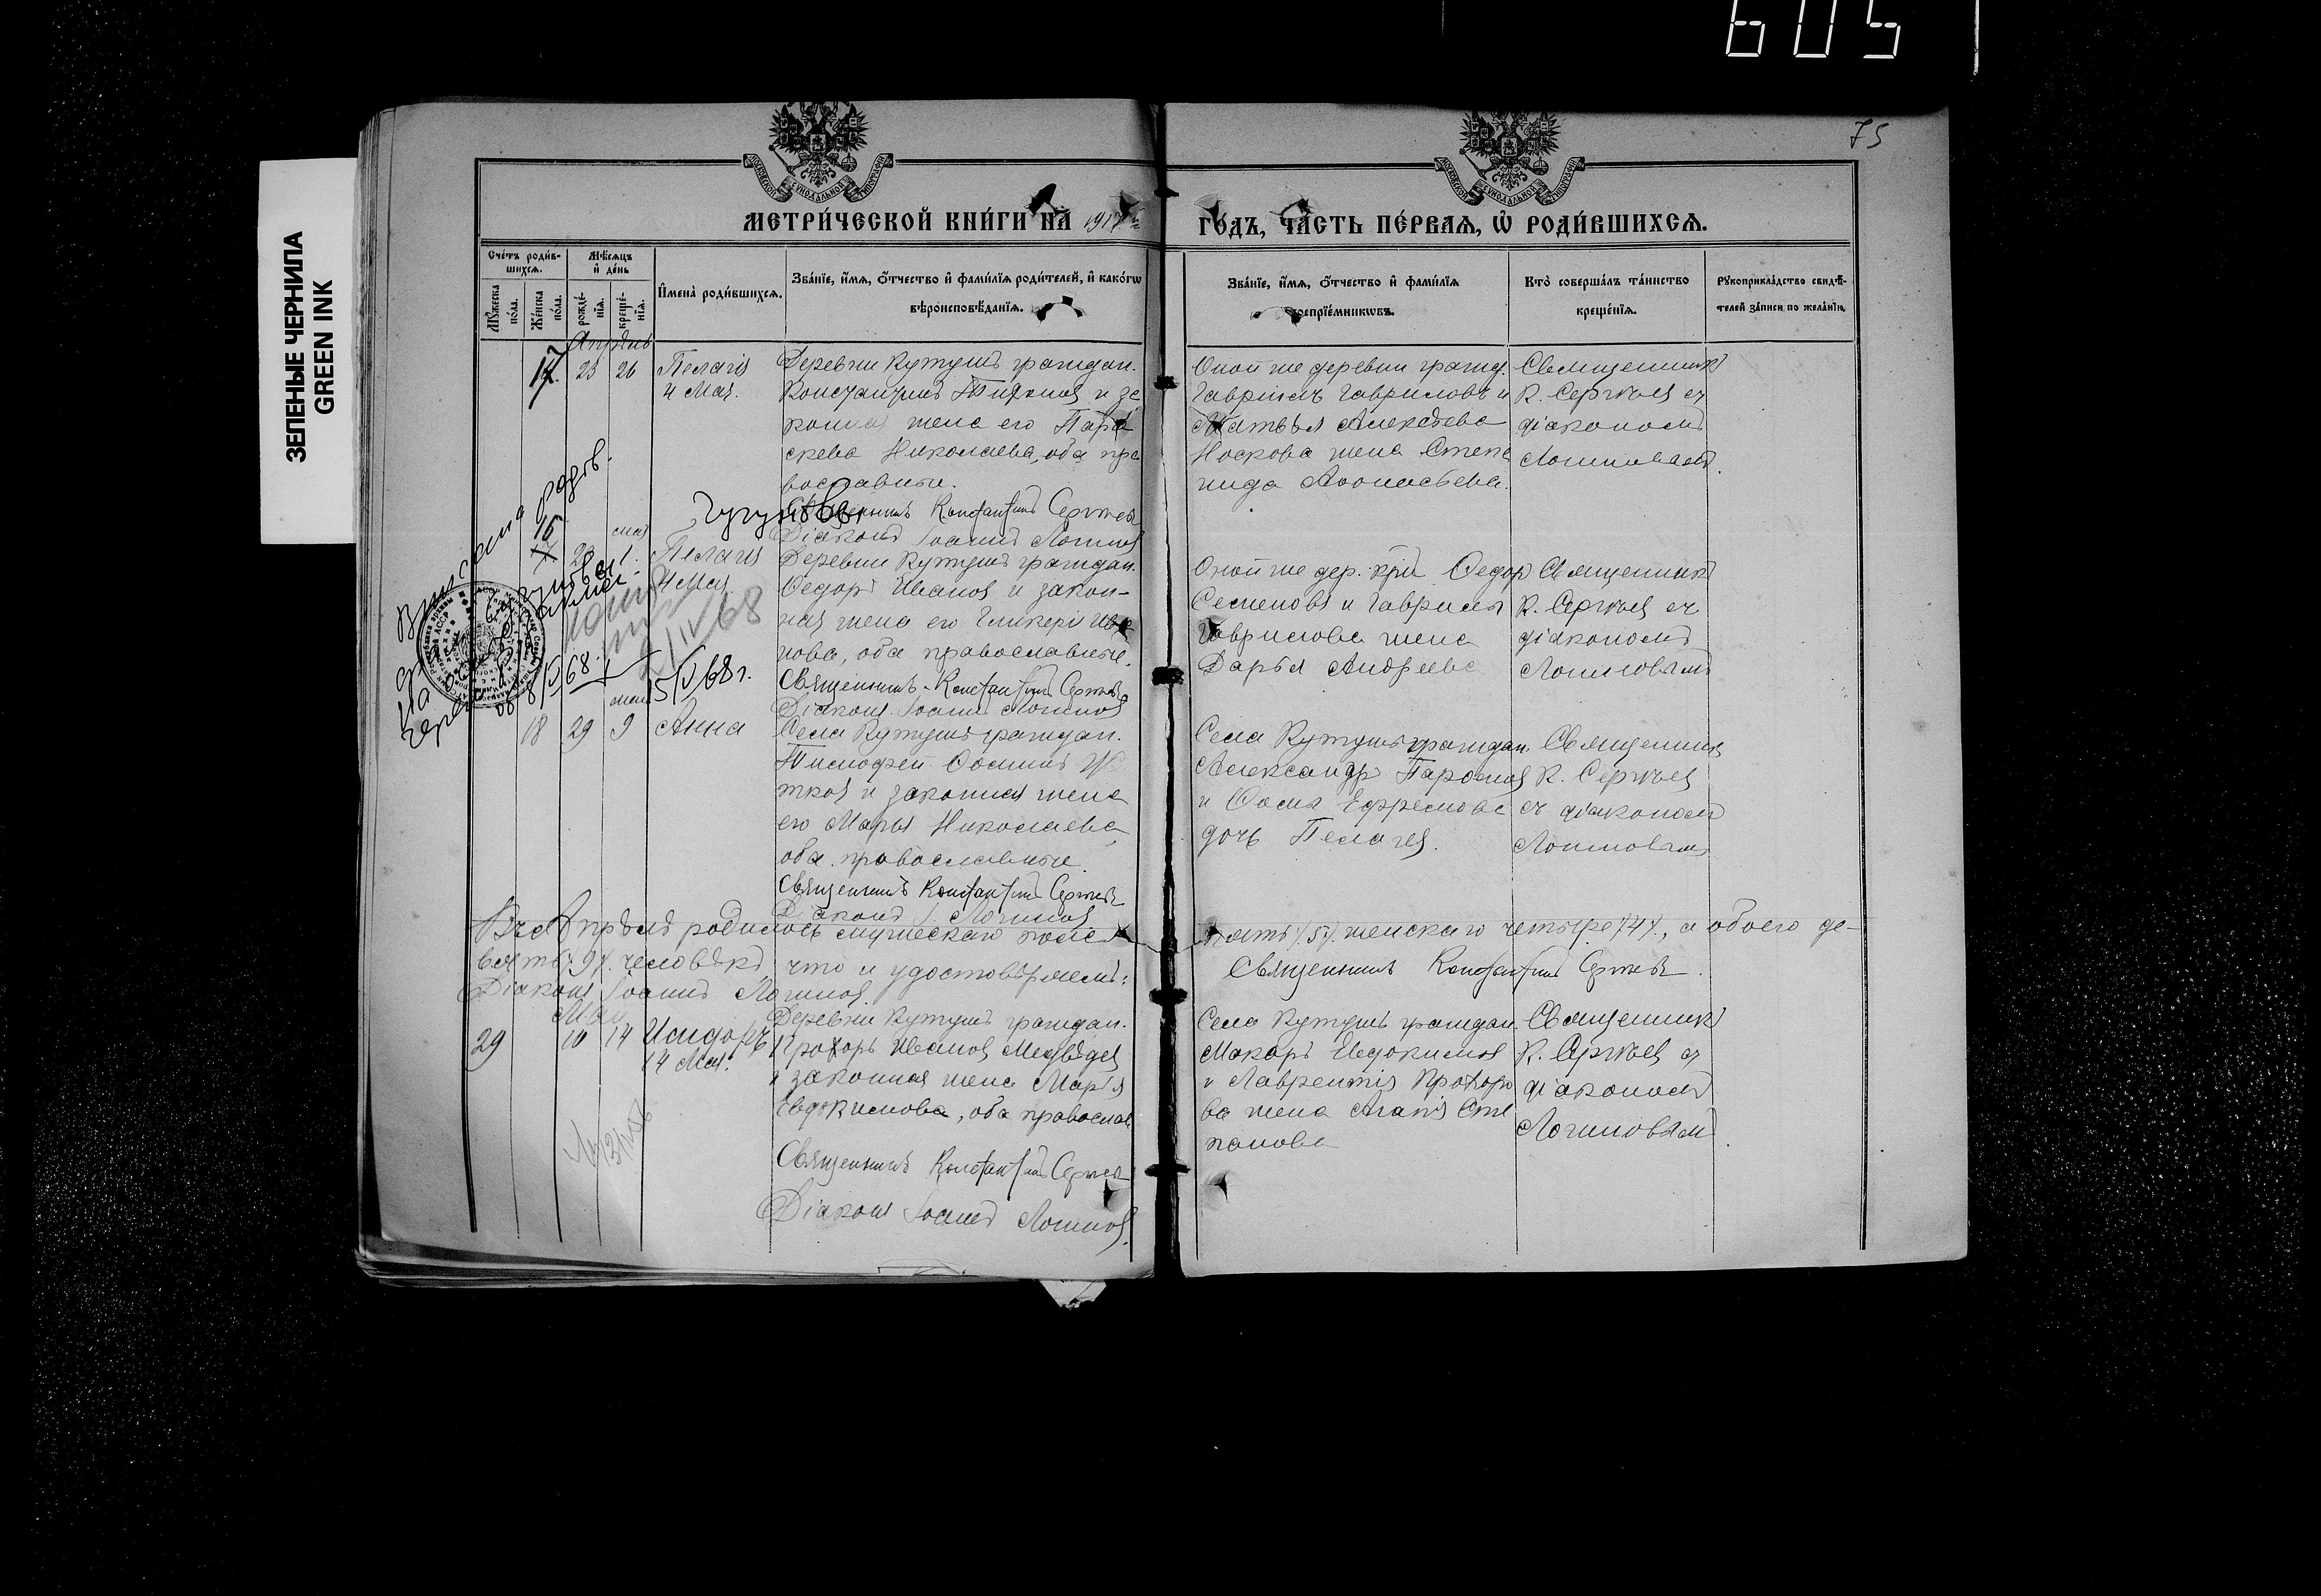 605
75
ЗЕЛЕНЫЕ ЧЕРНИЛА
GREEN INK
МЕТРИ́ЧЕСКОЙ КНИ́ГИ НА 1917 ГО́ДЪ, ЧА́СТЬ ПЕ́РВАЯ, Ѡ РОДИ́ВШИХСЯ.
Сче́тъ роди́в-
шихся.
Мѣ́сяцъ
и де́нь
Му́жеска
по́ла.
Же́нска
по́ла.
рожде́-
нія.
креще́-
нія.
Имена̀ роди́вшихся.
Зва́ніе, и́мя, о́тчество и фами́лія роди́телей, и како́гѡ
вѣроисповѣ́данія.
Зва́ніе, и́мя, о́тчество и фами́лія
воспріе́мникѡвъ.
Кто̀ соверша́лъ та́инство
креще́нія.
Рукоприкла́дство свидѣ́-
телей за́писи по жела́нію.
Апрѣль
17. 23 26 Пелагія
4 Мая.
Деревни Кутушъ граждан.
Константинъ Тихонов и за
конная жена его Пара
скева Николаева, оба пра
вославные.
Священникъ Константинъ Сергѣев
Діаконъ Іоаннъ Логинов
Оной же деревни гражд.
Гавріилъ Гавриловъ и
Матвѣя Алексѣева
Носкова жена Степа
нида Аѳонасьева.
Священникъ
К. Сергѣев съ
діакономъ
Логиновымъ.
Чугуновы
16 мая
1. Пелагія
4 Мая
Деревни Кутушъ граждан.
Ѳедоръ Иванов и закон-
ная жена его Гликерія Ива
нова, оба православные.
Священникъ Константинъ Сергѣевъ
Діаконъ Іоаннъ Логинов
Оной же дер. кр. Ѳедор
Семеновъ и Гаврилы
Гаврилова жена
Дарья Андреева
Священникъ
К. Сергѣев съ
діакономъ
Логиновымъ
Выписана
8/V 68.
IV 68
15/V 68 г.
мая
18 29 9 Анна
Села Кутушъ граждан.
Тимофей Ѳоминъ
и законная жена
его Марья Николаева,
оба православные
Священникъ Константинъ Сергѣевъ
Діаконъ І. Логинов
Села Кутушъ граждан.
Александр Парфенов
и Ѳомы Ефремова
дочь Пелагея.
Священник
К. Сергѣев
съ діакономъ
Логиновым
Въ Апрѣлѣ родилось мужескаго пола пять /5/. женскаго четыре /4/, а обоего де-
вять /9/. человѣкъ, что и удостовѣряемъ: Священникъ Константинъ Сергѣевъ.
Діаконъ Іоаннъ Логинов.
Май
29 10 14 Исидоръ
14 Мая.
Деревни Кутушъ граждан.
Прохоръ Иванов Медвѣдев
и законная жена Марія
Евдокимова, оба православ
Священникъ Константинъ Сергѣев
Діаконъ Іоаннъ Логинов.
Села Кутушъ граждан.
Макаръ Евдокимов
и Лаврентія Прохоро
ва жена Агапія Сте
панова
Священникъ
К. Сергѣев съ
діакономъ
Логиновым.